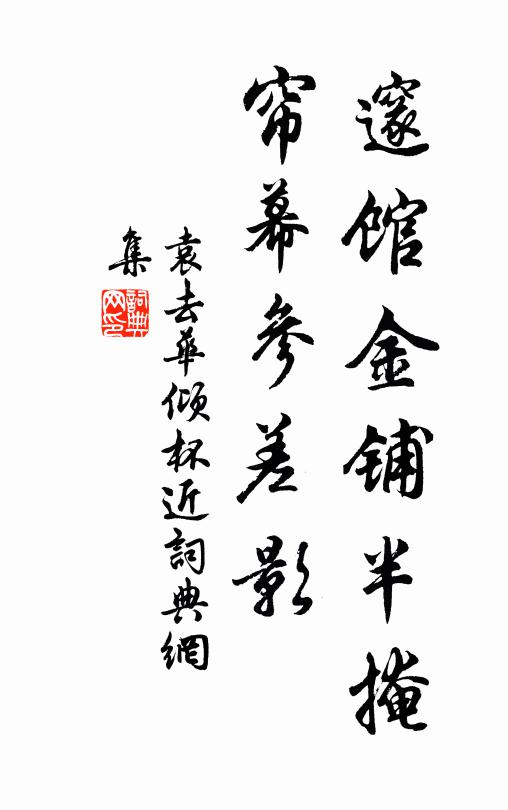 邃館金鋪半掩
帘幕參差影
袁去華傾杯近詞典網
集
詞典
网印